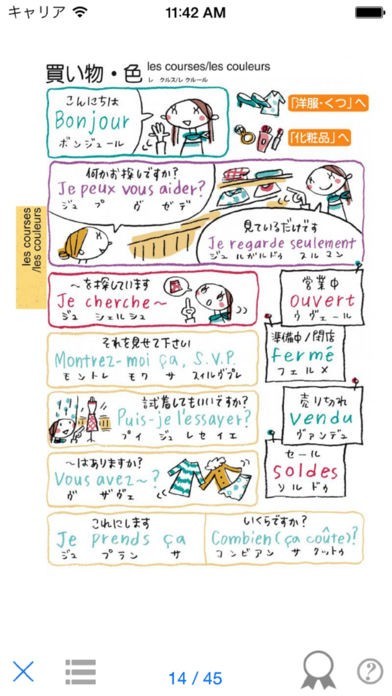 キャリア 11:42 AM
買い物・色 les courses/les couleurs
レ クルス/レ クルール
こんにちは
Bonjour
ボンジュール
「洋服・くつ」へ
「化粧品」へ
les courses
/les couleurs
何かお探しですか?
Je peux vous aider?
ジュ プ ヴ ゼデ
見ているだけです
Je regarde seulement
ジュ ルガルドゥ スルマン
～を探しています
Je cherche～
ジュ シェルシュ
営業中
ouvert
ウヴェール
それを見せて下さい
Montrez-moi ça, S.V.P.
モントレ モワ サ スィルヴプレ
準備中/閉店
fermé
フェルメ
試着してもいいですか?
Puis-je l'essayer?
プイ ジュ レセイエ
売り切れ
vendu
ヴァンデュ
～はありますか?
Vous avez～?
ヴ ザヴェ
セール
soldes
ソルドゥ
これにします
Je prends ça
ジュ プラン サ
いくらですか?
Combien (ça coûte)?
コンビアン サ クットゥ
14 / 45